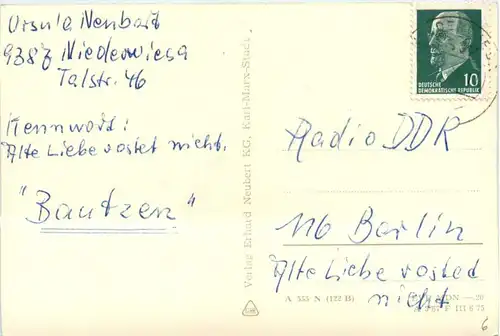 Ursula Neubert
9387 Niederwiesa
Talstr. 46
Kennwort:
Alte Liebe rostet nicht.
"Bautzen"
Verlag Erhard Neubert KG, Karl-Marx-Stadt
10
DEUTSCHE
DEMOKRATISCHE REPUBLIK
Radio DDR
116 Berlin
Alte Liebe rosted
nicht
A 555 N (122 B)
III 6 75
6